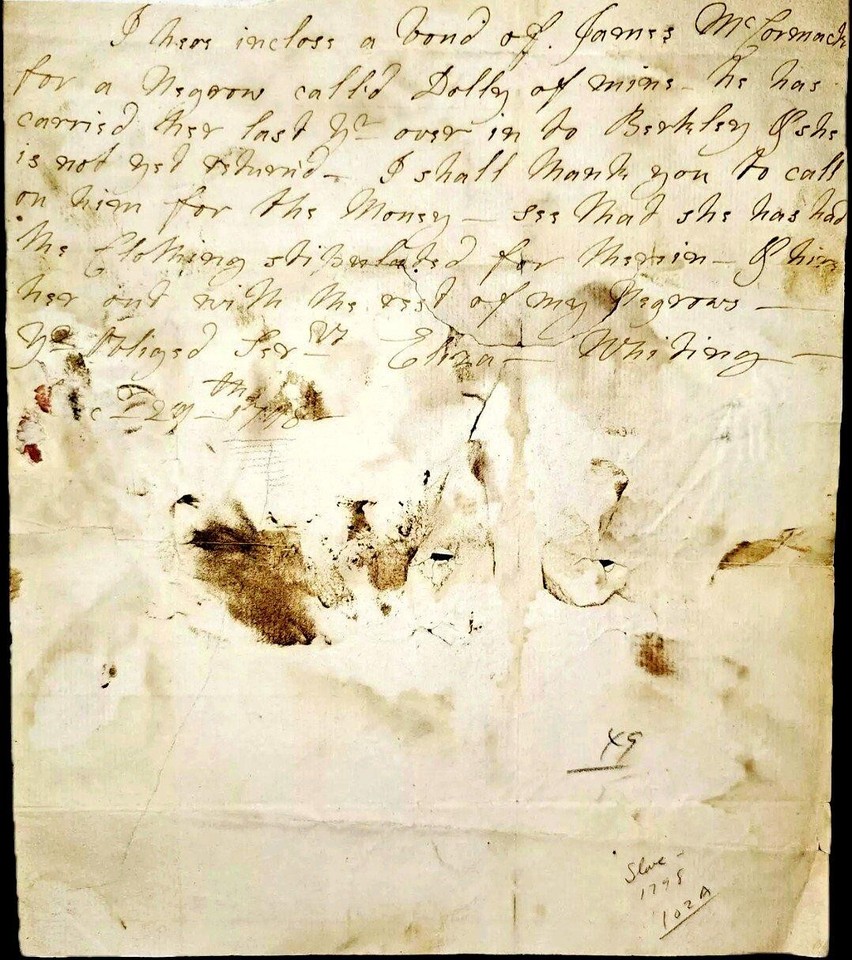 I here inclose a bond of James McCormack
for a Negrow calld Dolly of mine - he has
carried her last Yr over in to Berkley & she
is not yet returnd - I shall thank you to call
on him for the Money - see that she has had
the Clothing stipulated for therein - & hire
her out with the rest of my Negrows -
Yr Obliged Servt Eliza - Whiting -
29th
49
Slave -
1798
102A